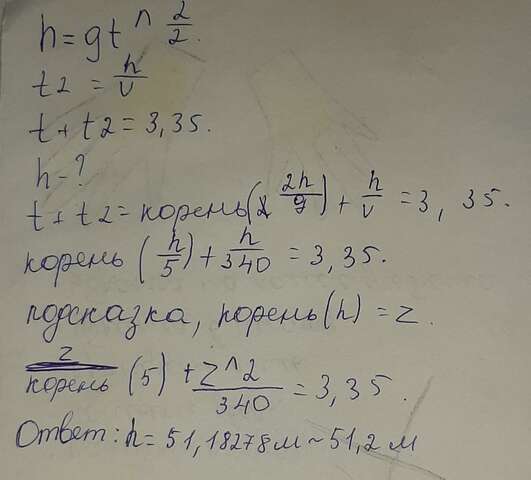 h = gt ^ 2/2.
t2 = h/v
t + t2 = 3,35.
h - ?
t + t2 = корень(2h/g) + h/v = 3, 35.
корень (h/5) + h/340 = 3,35.
подсказка, корень(h) = z.
z/корень (5) + z^2/340 = 3,35.
Ответ: h = 51,18278м ~ 51,2 м